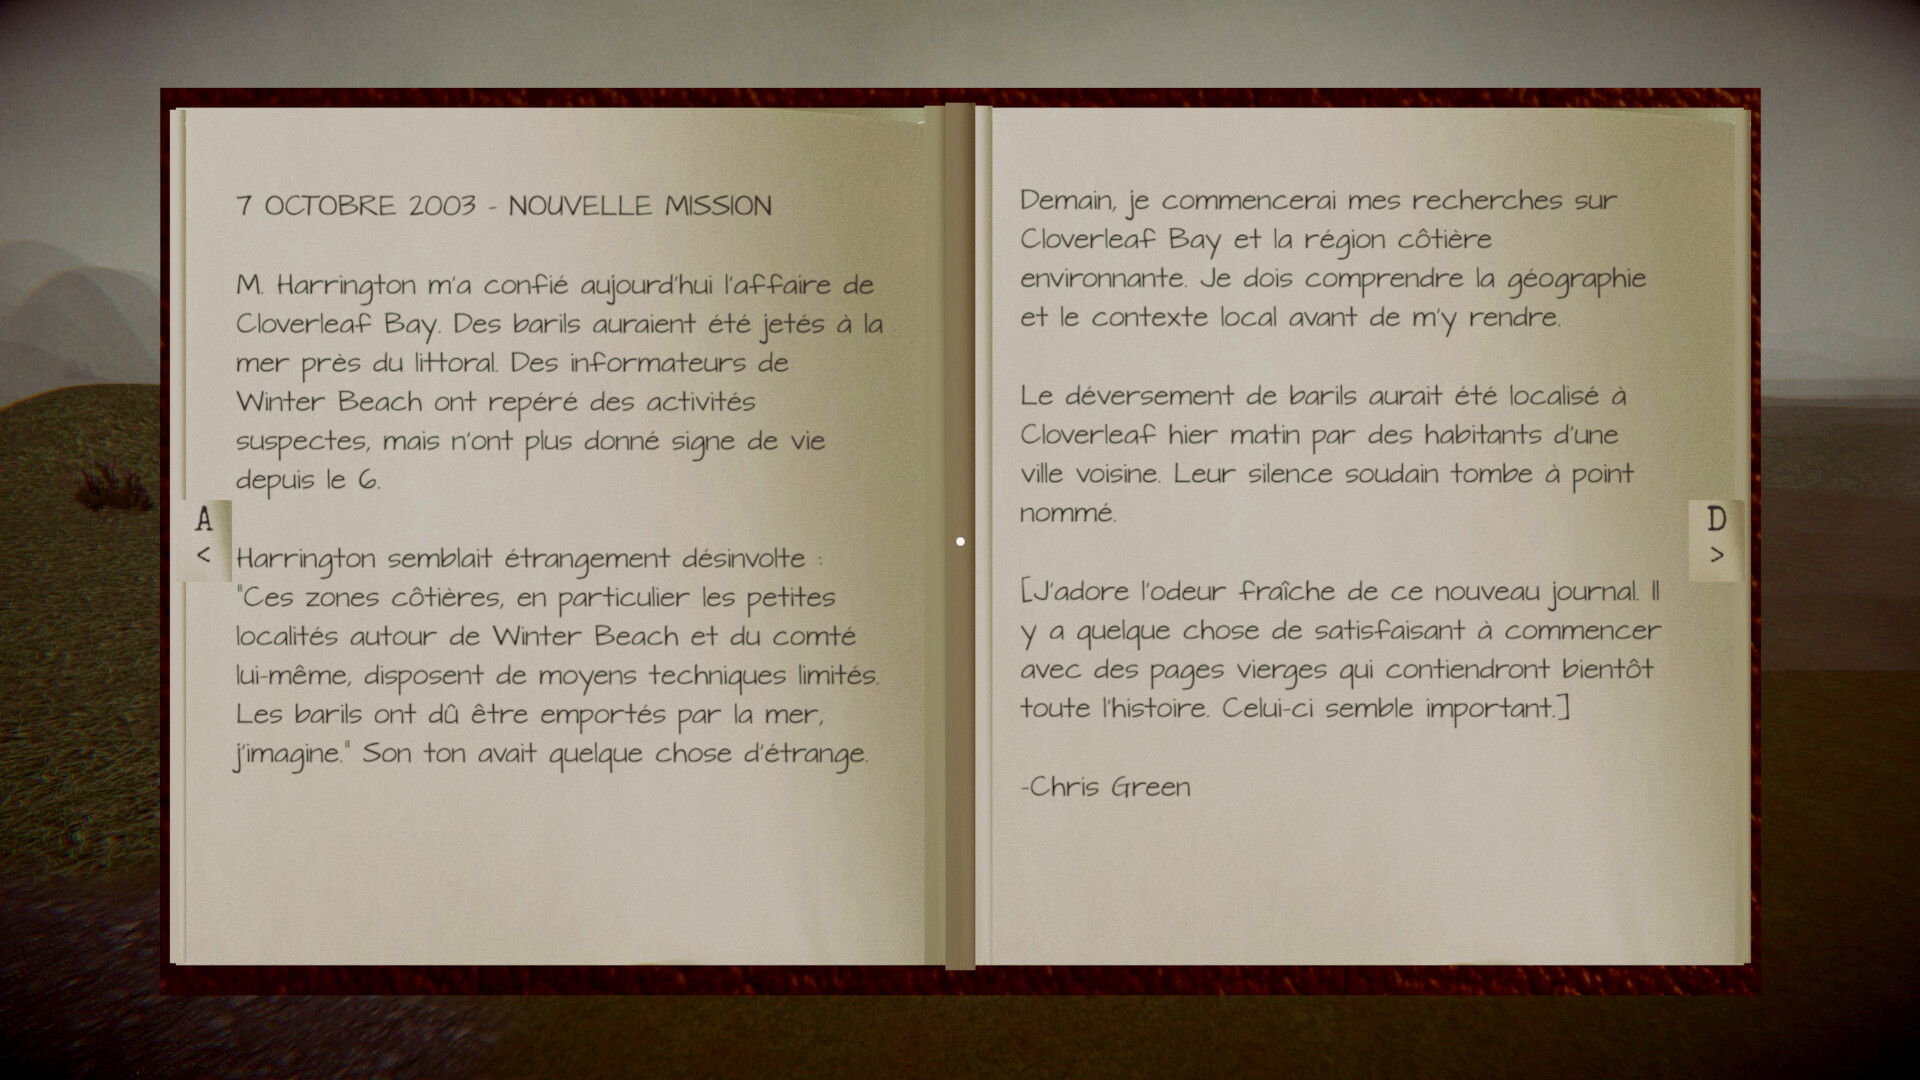 7 OCTOBRE 2003 - NOUVELLE MISSION
M. Harrington m'a confié aujourd'hui l'affaire de
Cloverleaf Bay. Des barils auraient été jetés à la
mer près du littoral. Des informateurs de
Winter Beach ont repéré des activités
suspectes, mais n'ont plus donné signe de vie
depuis le 6.
Harrington semblait étrangement désinvolte :
"Ces zones côtières, en particulier les petites
localités autour de Winter Beach et du comté
lui-même, disposent de moyens techniques limités.
Les barils ont dû être emportés par la mer,
j'imagine." Son ton avait quelque chose d'étrange.
A
<
Demain, je commencerai mes recherches sur
Cloverleaf Bay et la région côtière
environnante. Je dois comprendre la géographie
et le contexte local avant de m'y rendre.
Le déversement de barils aurait été localisé à
Cloverleaf hier matin par des habitants d'une
ville voisine. Leur silence soudain tombe à point
nommé.
[J'adore l'odeur fraîche de ce nouveau journal. Il
y a quelque chose de satisfaisant à commencer
avec des pages vierges qui contiendront bientôt
toute l'histoire. Celui-ci semble important.]
-Chris Green
D
>